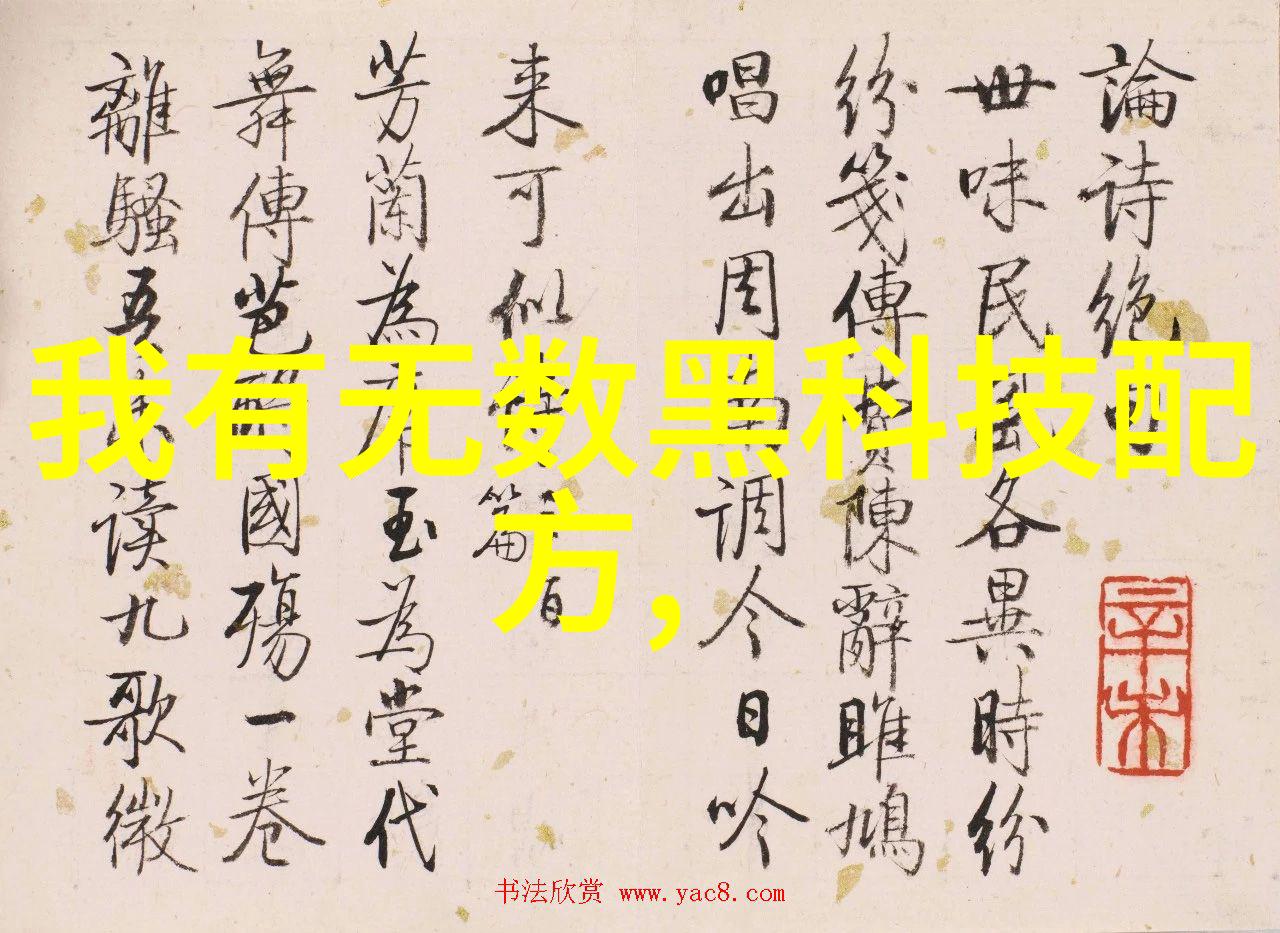 我有无数黑科技配
方,
論诗绝
世味民風各異時紛
紛箋傳費陳辭雎鳩
唱出周南调今日吟
来可似
芳蘭為席玉為堂代
舞傳芭酹國殤一卷
離騷吾读九歌微
辛未
书法欣赏 www.yac8.com